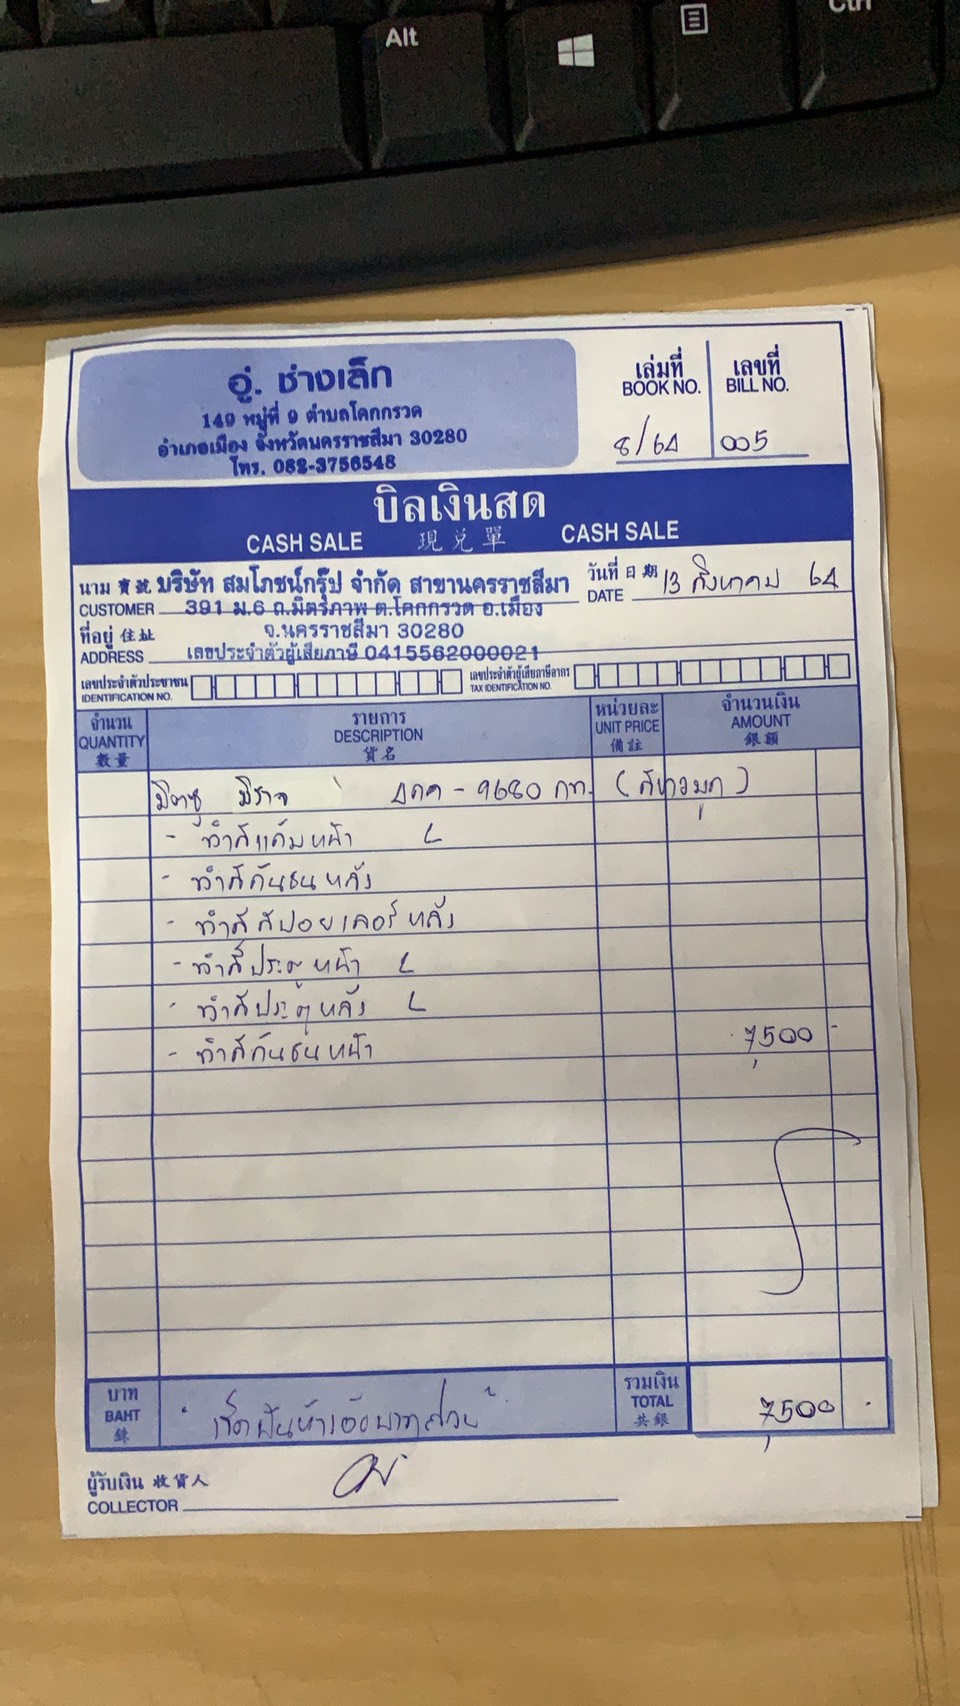 Alt
Ctrl
อู่. ช่างเล็ก
149 หมู่ที่ 9 ตำบลโคกกรวด
อำเภอเมือง จังหวัดนครราชสีมา 30280
โทร. 082-3756548
เล่มที่ เลขที่
BOOK NO. BILL NO.
8/64 005
บิลเงินสด
CASH SALE 現兌單 CASH SALE
นาม 寶號 บริษัท สมโภชน์กรุ๊ป จำกัด สาขานครราชสีมา วันที่ 日期 13 สิงหาคม 64
CUSTOMER 391 ม.6 ถ.มิตรภาพ ต.โคกกรวด อ.เมือง DATE
ที่อยู่ 住址 จ.นครราชสีมา 30280
ADDRESS เลขประจำตัวผู้เสียภาษี 0415562000021
เลขประจำตัวประชาชน เลขประจำตัวผู้เสียภาษีอากร
IDENTIFICATION NO. TAX IDENTIFICATION NO.
จำนวน รายการ หน่วยละ จำนวนเงิน
QUANTITY DESCRIPTION UNIT PRICE AMOUNT
數量 貨名 備註 銀額
มิตซู มิราจ - 9680 กท. (สีขาวมุก)
- ทำสีแก้มหน้า L
- ทำสีกันชนหลัง
- ทำสีสปอยเลอร์หลัง
- ทำสีประตูหน้า L
- ทำสีประตูหลัง L
- ทำสีกันชนหน้า 7,500 -
บาท รวมเงิน
BAHT เจ็ดพันห้าร้อยบาทถ้วน TOTAL 7,500 -
銖 共銀
ผู้รับเงิน 收貨人
COLLECTOR